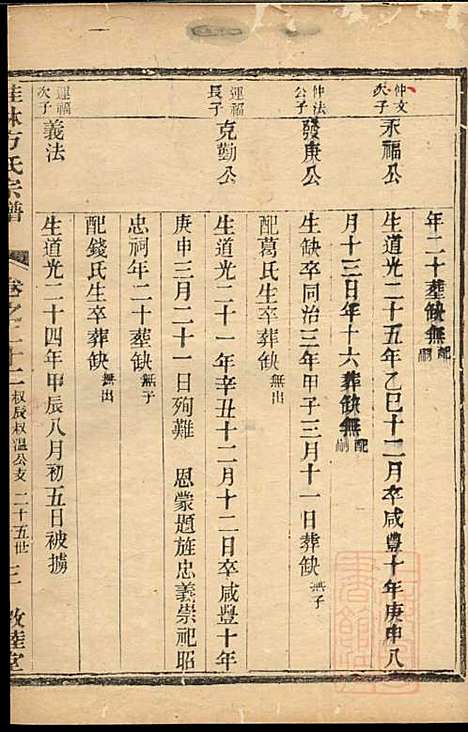 年二十葬缺無配嗣
仲文次子
永福公
生道光二十五年乙巳十二月卒咸豐十年庚申八
月十三日年十六葬缺無配嗣
仲法公子
發庚公
生缺卒同治三年甲子三月十一日葬缺無子
配葛氏生卒葬缺無出
運福長子
克勤公
生道光二十一年辛丑十二月十二日卒咸豐十年
庚申三月二十一日殉難 恩蒙題旌忠義崇祀昭
忠祠年二十葬缺無子
配錢氏生卒葬缺無出
運福次子
義法
生道光二十四年甲辰八月初五日被擄
桂林方氏宗譜 卷之三十二 叔辰叔溫公支 二十五世 三 敦睦堂